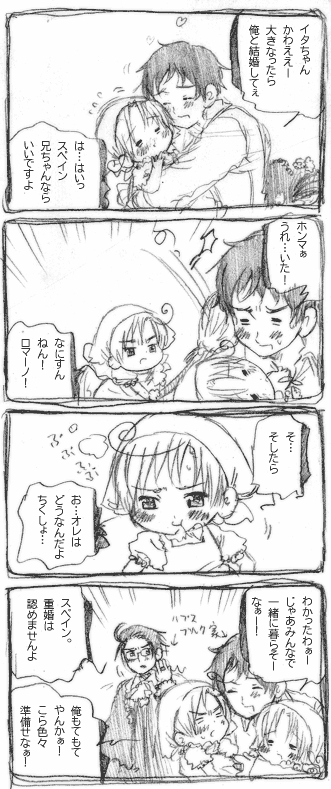 イタちゃん
かわええー
大きなったら
俺と結婚してぇ
は…はいっ
スペイン
兄ちゃんなら
いいですよ
ホンマぁ
うれ…いた！
なにすん
ねん！
ロマーノ！
そ…
そしたら
ぷ
ぷ
ぷ
お…オレは
どうなんだよ
ちくしょ…
わかったわぁー
じゃあみんなで
一緒に暮らそー
なぁー！
ハプス
ブルク家
スペイン。
重婚は
認めませんよ
俺もてもて
やんかぁ！
こら色々
準備せなぁ！